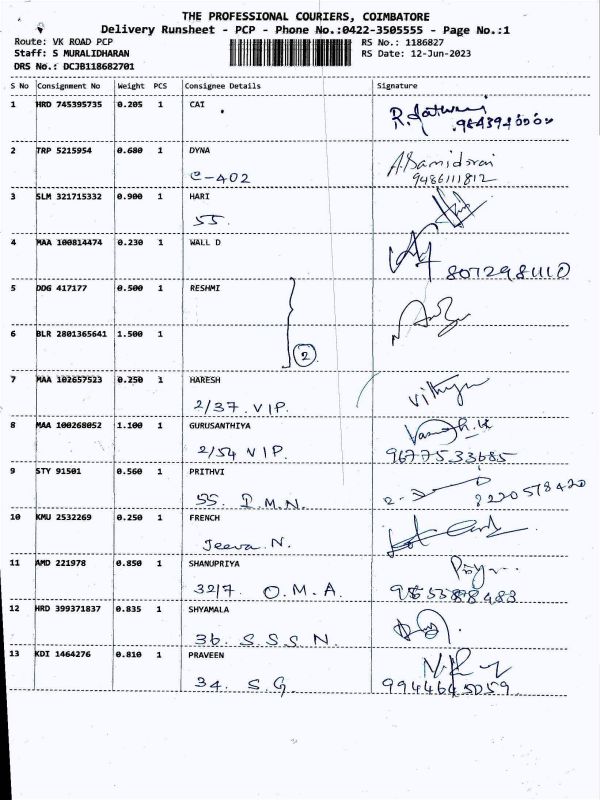 THE PROFESSIONAL COURIERS, COIMBATORE
Delivery Runsheet - PCP - Phone No.:0422-3505555 - Page No.:1
Route: VK ROAD PCP RS No.: 1186827
Staff: S MURALIDHARAN RS Date: 12-Jun-2023
DRS No.: DCJB118682701
S No Consignment No Weight PCS Consignee Details Signature
1 HRD 745395735 0.205 1 CAI
2 TRP 5215954 0.680 1 DYNA
C-402 9486111812
3 SLM 321715332 0.900 1 HARI
55.
4 MAA 100814474 0.230 1 WALL D
8072981110
5 DDG 417177 0.500 1 RESHMI
6 BLR 2801365641 1.500 1
2
7 MAA 102657523 0.250 1 HARESH
2/37. VIP.
8 MAA 100268052 1.100 1 GURUSANTHIYA
2/54 VIP. 9677533685
9 STY 91501 0.560 1 PRITHVI
55. P.M.N. 8220578420
10 KMU 2532269 0.250 1 FRENCH
Jeeva. N.
11 AMD 221978 0.850 1 SHANUPRIYA
32/7. O.M.A.
12 HRD 399371837 0.835 1 SHYAMALA
36. S.S.S.N.
13 KDI 1464276 0.810 1 PRAVEEN
34. S.G. 9944645059